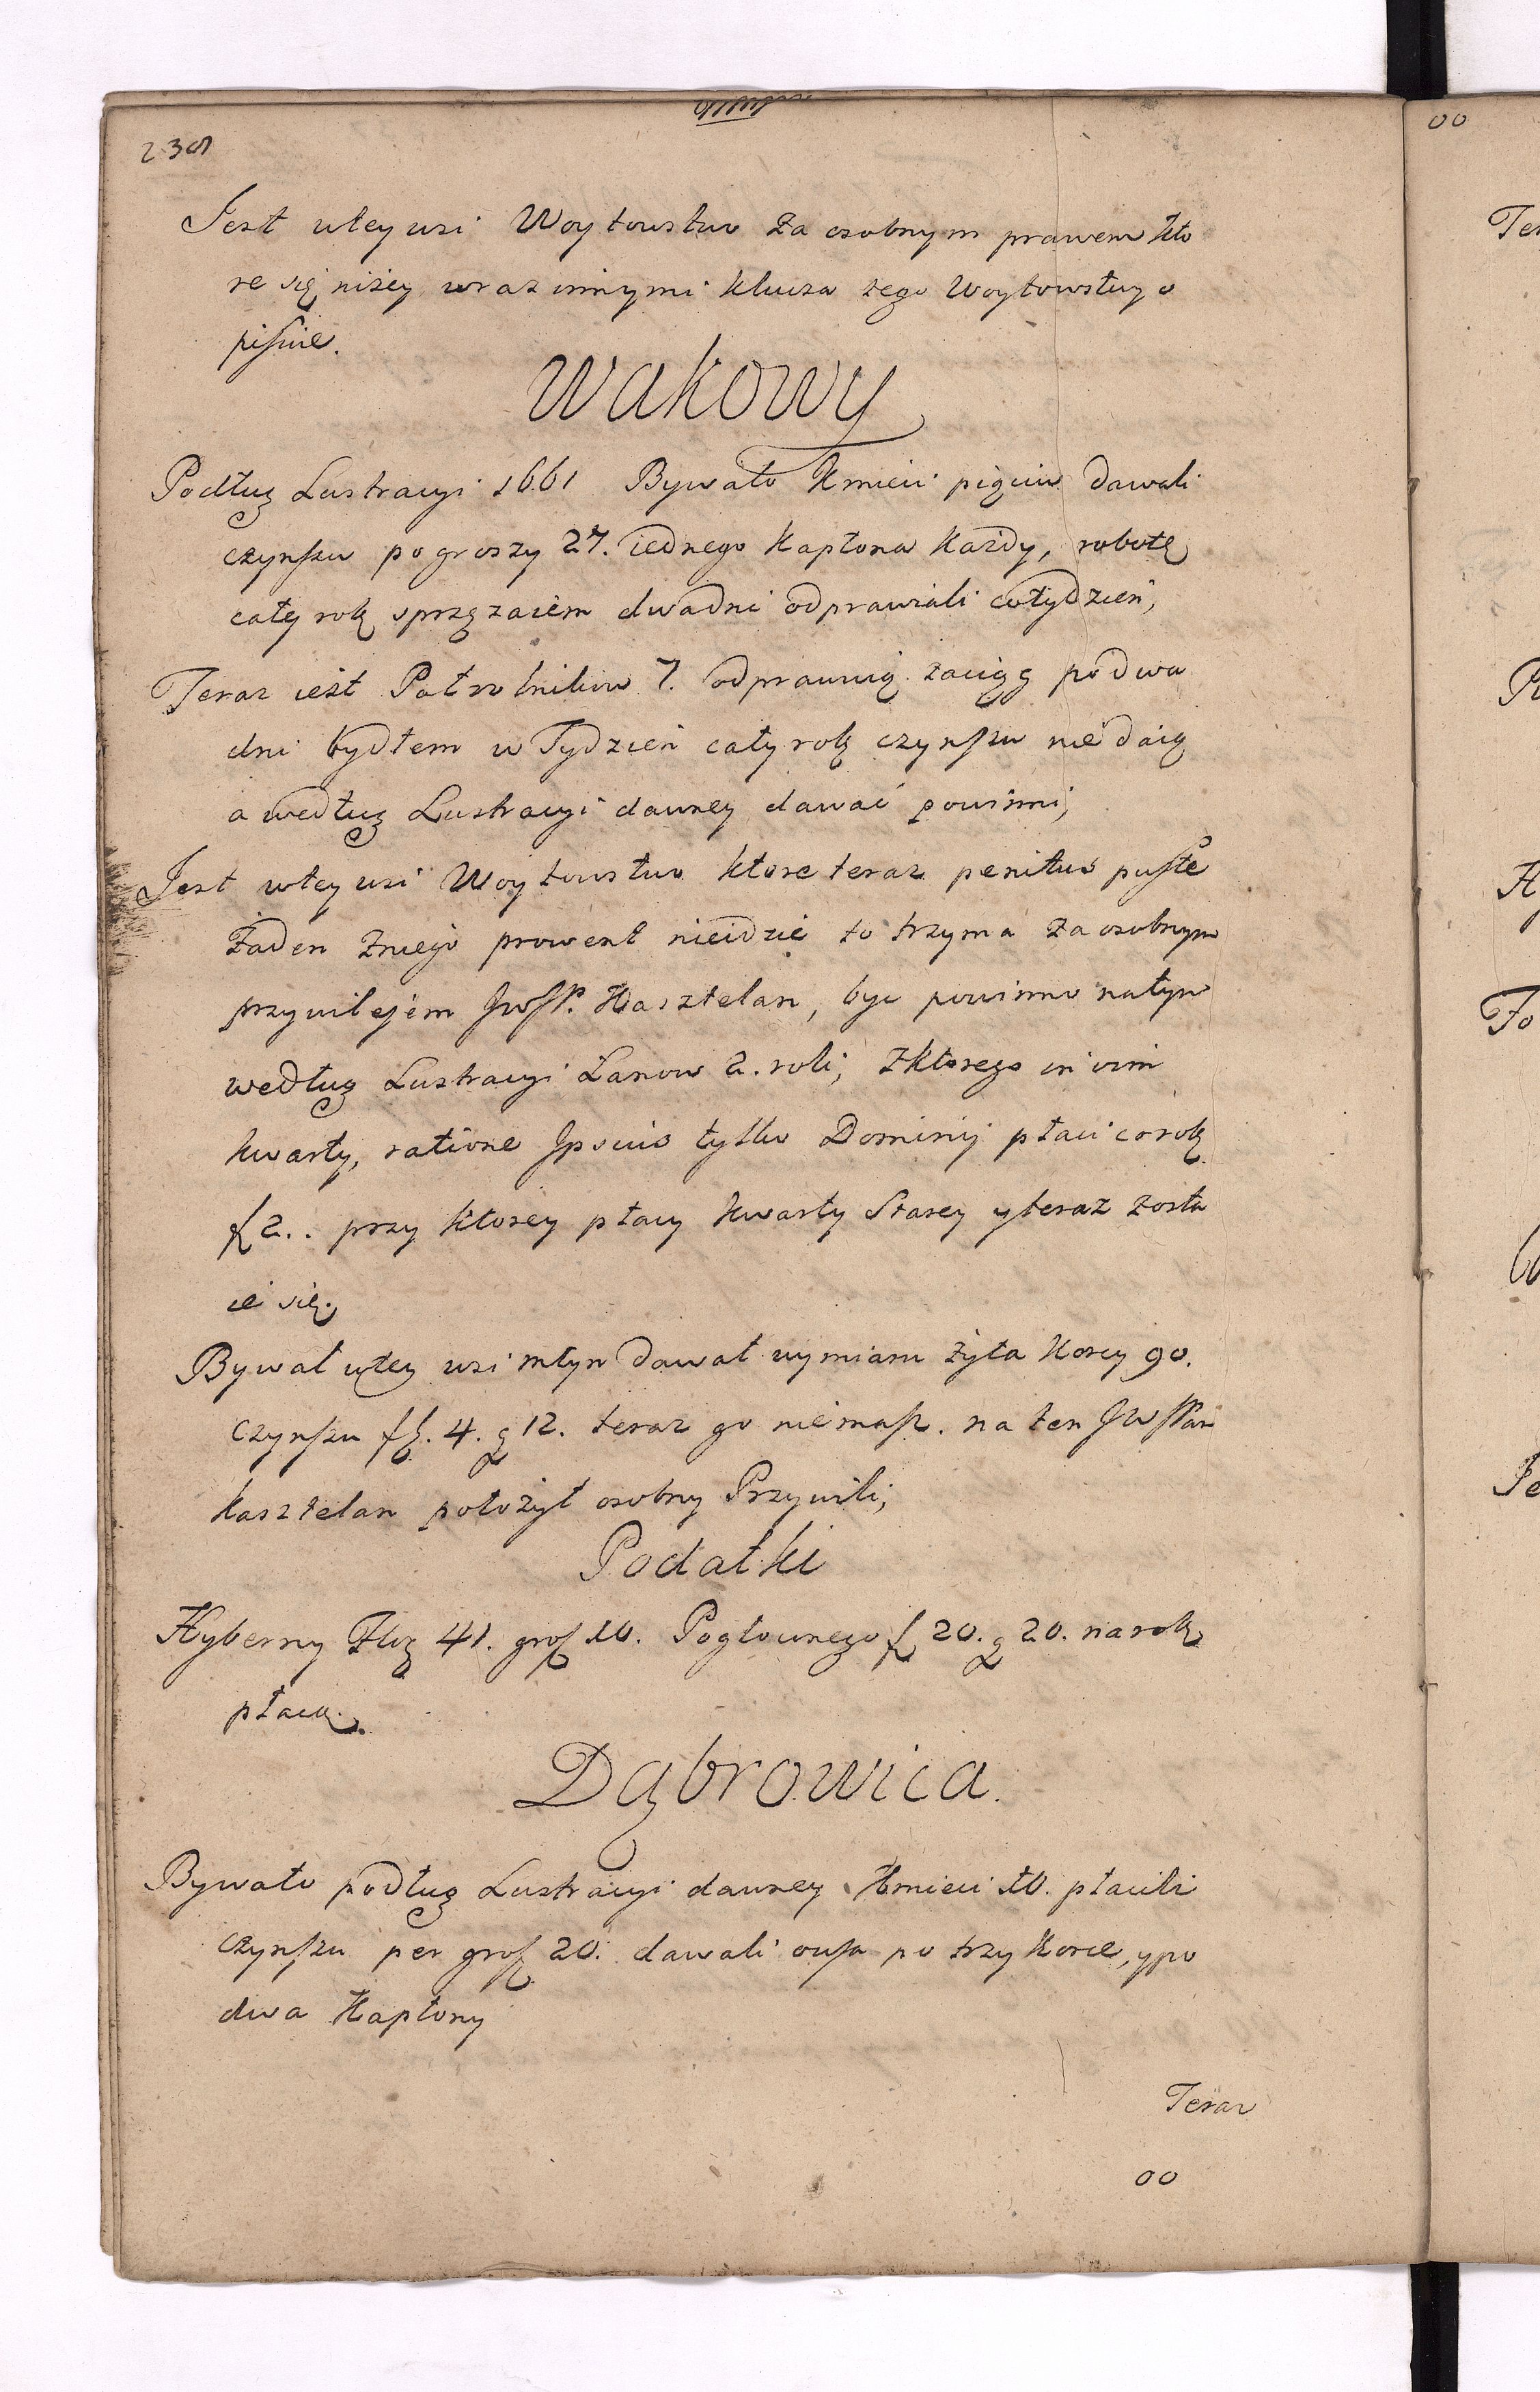 238
Jest wtey wsi Woytowstwo za osobnym prawem kto
re się niżey wraz innymi klucza tego Woytowstwy o
pisuie.
Wakowy
Podług Lustracyi 1661 Bywało Kmieci pięciu dawali
czynszu po groszy 27. iednego kapłona każdy, robotę
cały rok sprzęzaiem dwadni odprawiali cotydzień,
Teraz iest Pułrolnikow 7. odprawuią zaciąg podwa
dni bydłem w Tydzień cały rok czynszu niedaią
a według Lustracyi dawney dawać powinni,
Jest wtey wsi Woytowstwo ktore teraz penitus puste
Żaden zniego prowent nieidzie to trzyma za osobnym
przywilejem JWP. Kasztelan, byc powinno natym
według Lustracyi Łanow 2. roli, zktorego in vim
kwarty, ratione Ipsius tylko Dominij płaci corok
f 2.. przy ktorey płacy kwarty Starey yteraz zosta
ie się.
Bywał wtey wsi młyn dawał wymiaru żyta korcy 90.
czynszu fl. 4. g 12. teraz go niemasz. na ten JWPan
kasztelan położył osobny Przywili,
Podatki
Hyberny Złłg 41. gros 10. Pogłownego f 20. g 20. narok
płacą.
Dąbrowica.
Bywało podług Lustracyi dawney Kmieci 10. płacili
czynszu per gros 20. dawali owsa po trzy korce, ypo
dwa Kapłony
Teraz
00